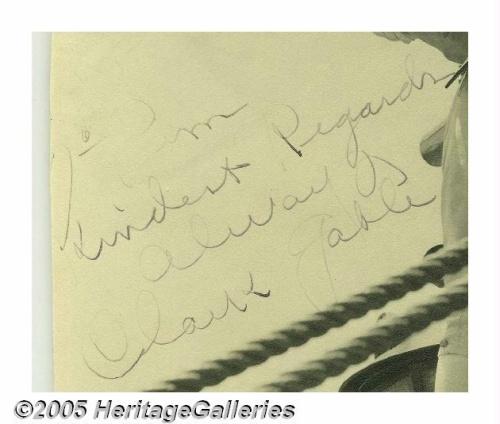 To Jim
Kindest Regards
Always
Clark Gable
©2005 HeritageGalleries